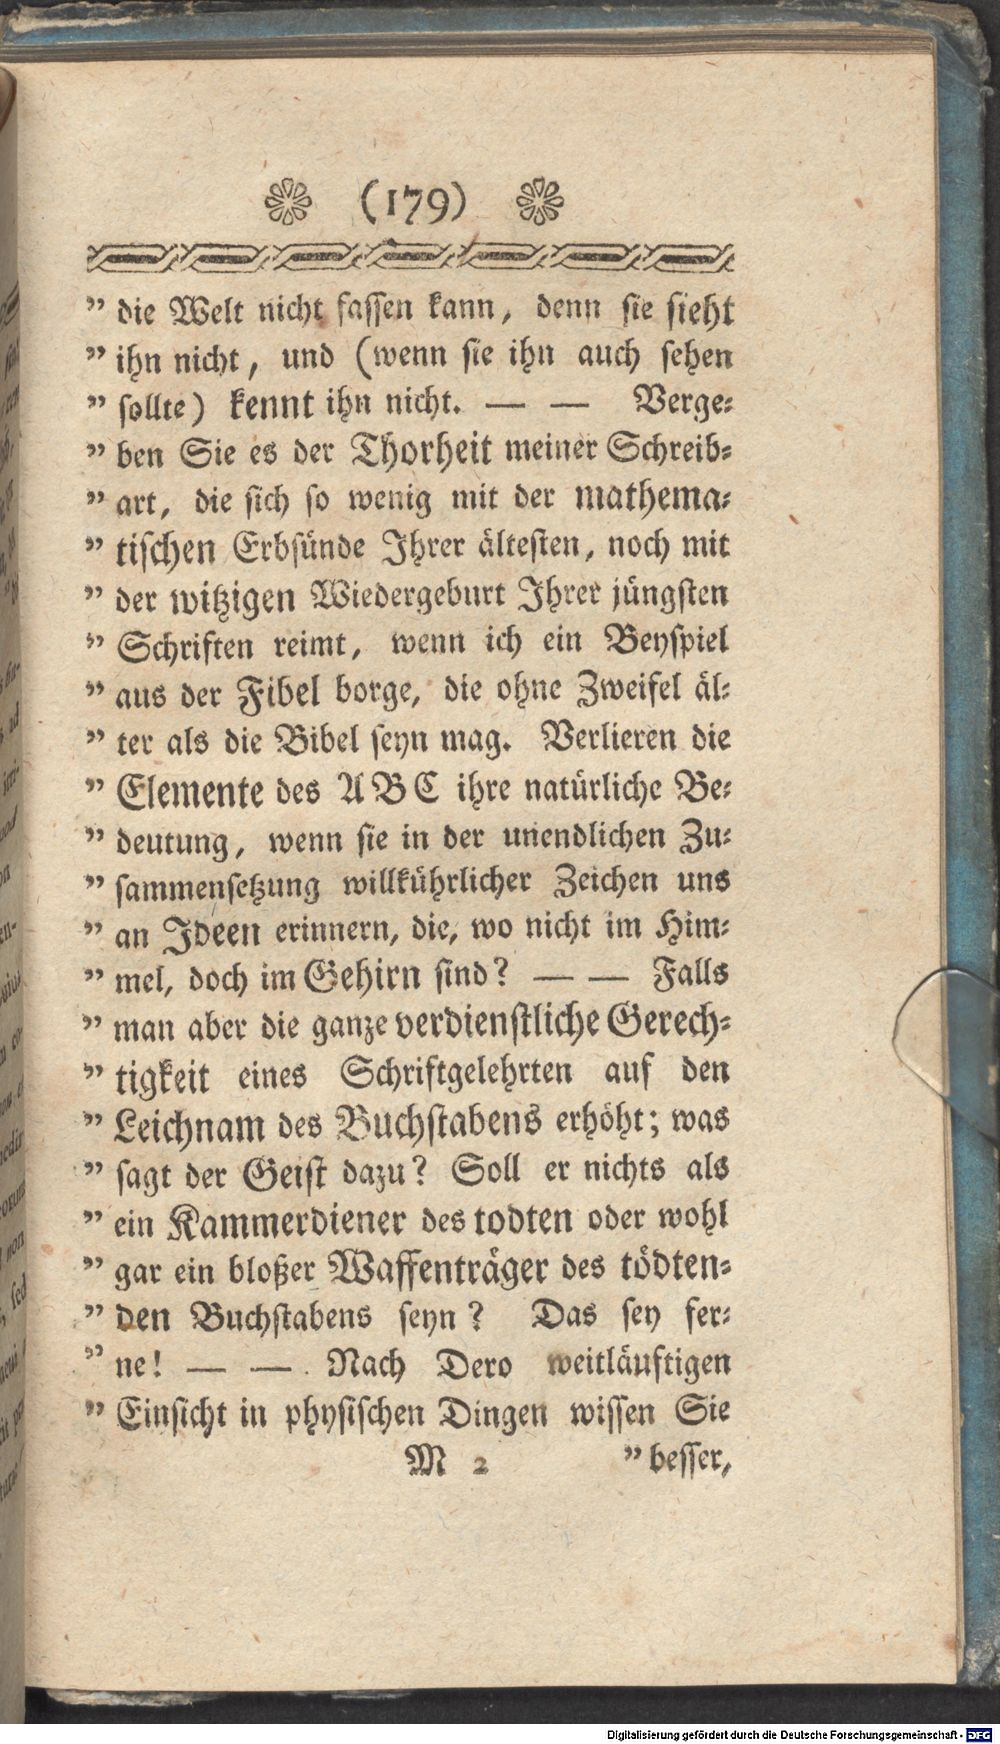 (179)
” die Welt nicht fassen kann, denn sie sieht
” ihn nicht, und (wenn sie ihn auch sehen
” sollte) kennt ihn nicht. — — Verge⸗
” ben Sie es der Thorheit meiner Schreib⸗
” art, die sich so wenig mit der mathema⸗
” tischen Erbsünde Ihrer ältesten, noch mit
” der witzigen Wiedergeburt Ihrer jüngsten
” Schriften reimt, wenn ich ein Beyspiel
” aus der Fibel borge, die ohne Zweifel äl⸗
” ter als die Bibel seyn mag. Verlieren die
” Elemente des A B C ihre natürliche Be⸗
” deutung, wenn sie in der unendlichen Zu⸗
” sammensetzung willkührlicher Zeichen uns
” an Ideen erinnern, die, wo nicht im Him⸗
” mel, doch im Gehirn sind? — — Falls
” man aber die ganze verdienstliche Gerech⸗
” tigkeit eines Schriftgelehrten auf den
” Leichnam des Buchstabens erhöht; was
” sagt der Geist dazu? Soll er nichts als
” ein Kammerdiener des todten oder wohl
” gar ein bloßer Waffenträger des tödten⸗
” den Buchstabens seyn? Das sey fer⸗
” ne! — — Nach Dero weitläuftigen
” Einsicht in physischen Dingen wissen Sie
M 2 ” besser,
Digitalisierung gefördert durch die Deutsche Forschungsgemeinschaft - DFG